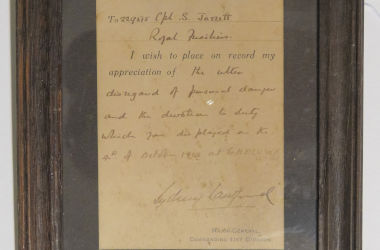 Cpl S. Jarrett
Royal Fusiliers
I wish to place on record my
appreciation of the utter
disregard of personal danger
and the devotion to duty
which you displayed on the
4th of October 1918 at
MAJOR-GENERAL,
COMMANDING 41ST DIVISION